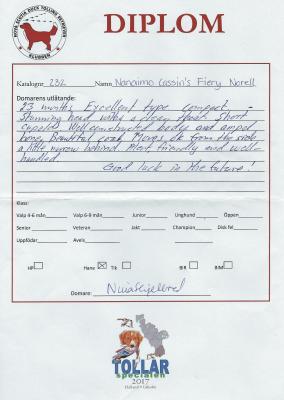 NOVA SCOTIA DUCK TOLLING RETRIEVER
KLUBBEN
DIPLOM
Katalognr 232 Namn Nanaimo Cassin's Fiery Norell
Domarens utlåtande:
23 months Excellent type compact -
Stunning head with a clean throat Short
coupled. Well constructed body and ampel
bone. Beautiful coat Moves ok from the side
a little narrow behind. Alert friendly and well-
handled.
Good luck in the future!
Klass:
Valp 4-6 mån Valp 6-9 mån Junior Unghund Öppen
Senior Veteran Jakt Champion Disk fel
Uppfödar Avels
HP Hane Tik BIR BIM
Domare:
TOLLAR
specialen
2017